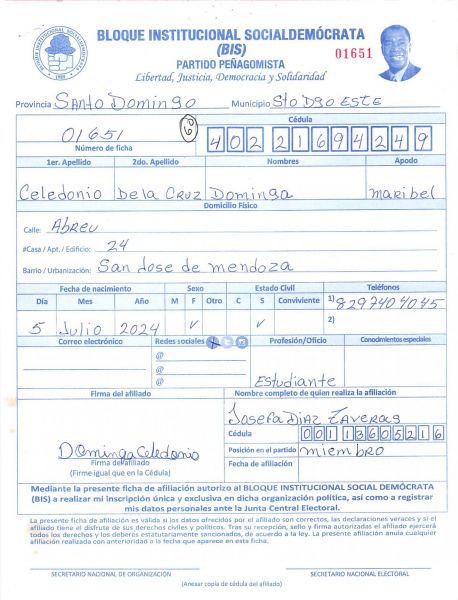 BLOQUE INSTITUCIONAL SOCIALDEMÓCRATA
(BIS)
01651
PARTIDO PEÑAGOMISTA
Libertad, Justicia, Democracia y Solidaridad
Provincia Santo Domingo Municipio Sto Dgo Este
Cédula
01651 402 2169424 9
Número de ficha
1er. Apellido 2do. Apellido Nombres Apodo
Celedonio De la Cruz Dominga maribel
Domicilio Físico
Calle: Abreu
#Casa / Apt. / Edificio: 24
Barrio / Urbanización: San Jose de mendoza
Fecha de nacimiento Sexo Estado Civil Teléfonos
Día Mes Año M F Otro C S Conviviente 1) 8297404045
5 Julio 2024 ✓ ✓ 2)
Correo electrónico Redes sociales Profesión/Oficio Conocimientos especiales
@
@
@ Estudiante
Firma del afiliado Nombre completo de quien realiza la afiliación
Josefa Diaz Taveras
Cédula
001 1360521 6
Dominga Celedonio Posición en el partido miembro
Firma del afiliado
(Firme igual que en la Cédula) Fecha de afiliación
Mediante la presente ficha de afiliación autorizo al BLOQUE INSTITUCIONAL SOCIAL DEMÓCRATA
(BIS) a realizar mi inscripción única y exclusiva en dicha organización política, así como a registrar
mis datos personales ante la Junta Central Electoral.
La presente ficha de afiliación es válida si los datos ofrecidos por el afiliado son correctos, las declaraciones veraces y si el
afiliado tiene el disfrute de sus derechos civiles y políticos. Tras su recepción, sello y firma autorizadas el afiliado ejercerá
todos los derechos y los deberes estatutariamente sancionados, de acuerdo a la ley. La presente afiliación anula cualquier
afiliación realizada con anterioridad a la fecha que aparece en esta ficha.
SECRETARIO NACIONAL DE ORGANIZACIÓN SECRETARIO NACIONAL ELECTORAL
(Anexar copia de cédula del afiliado)